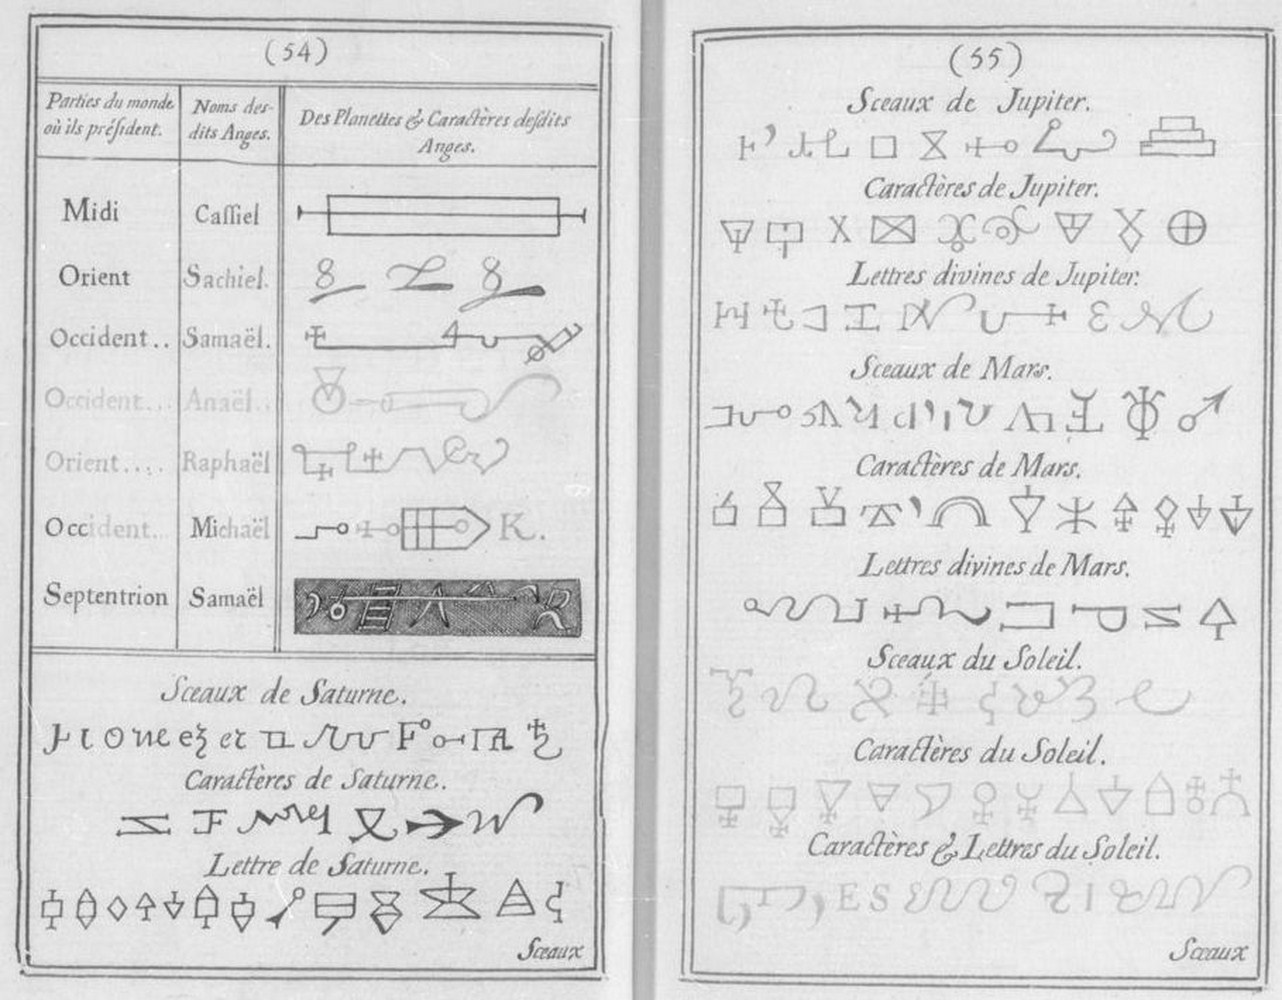 (54)
Parties du monde où ils président.
Noms des-dits Anges.
Des Planettes & Caractères desdits Anges.
Midi Cassiel
Orient Sachiel.
Occident.. Samaël.
Occident... Anaël..
Orient.... Raphaël
Occident.. Michaël K.
Septentrion Samaël
Sceaux de Saturne.
Caractères de Saturne.
Lettre de Saturne.
Sceaux
(55)
Sceaux de Jupiter.
Caractères de Jupiter.
Lettres divines de Jupiter.
Sceaux de Mars.
Caractères de Mars.
Lettres divines de Mars.
Sceaux du Soleil.
Caractères du Soleil.
Caractères & Lettres du Soleil.
E S
Sceaux